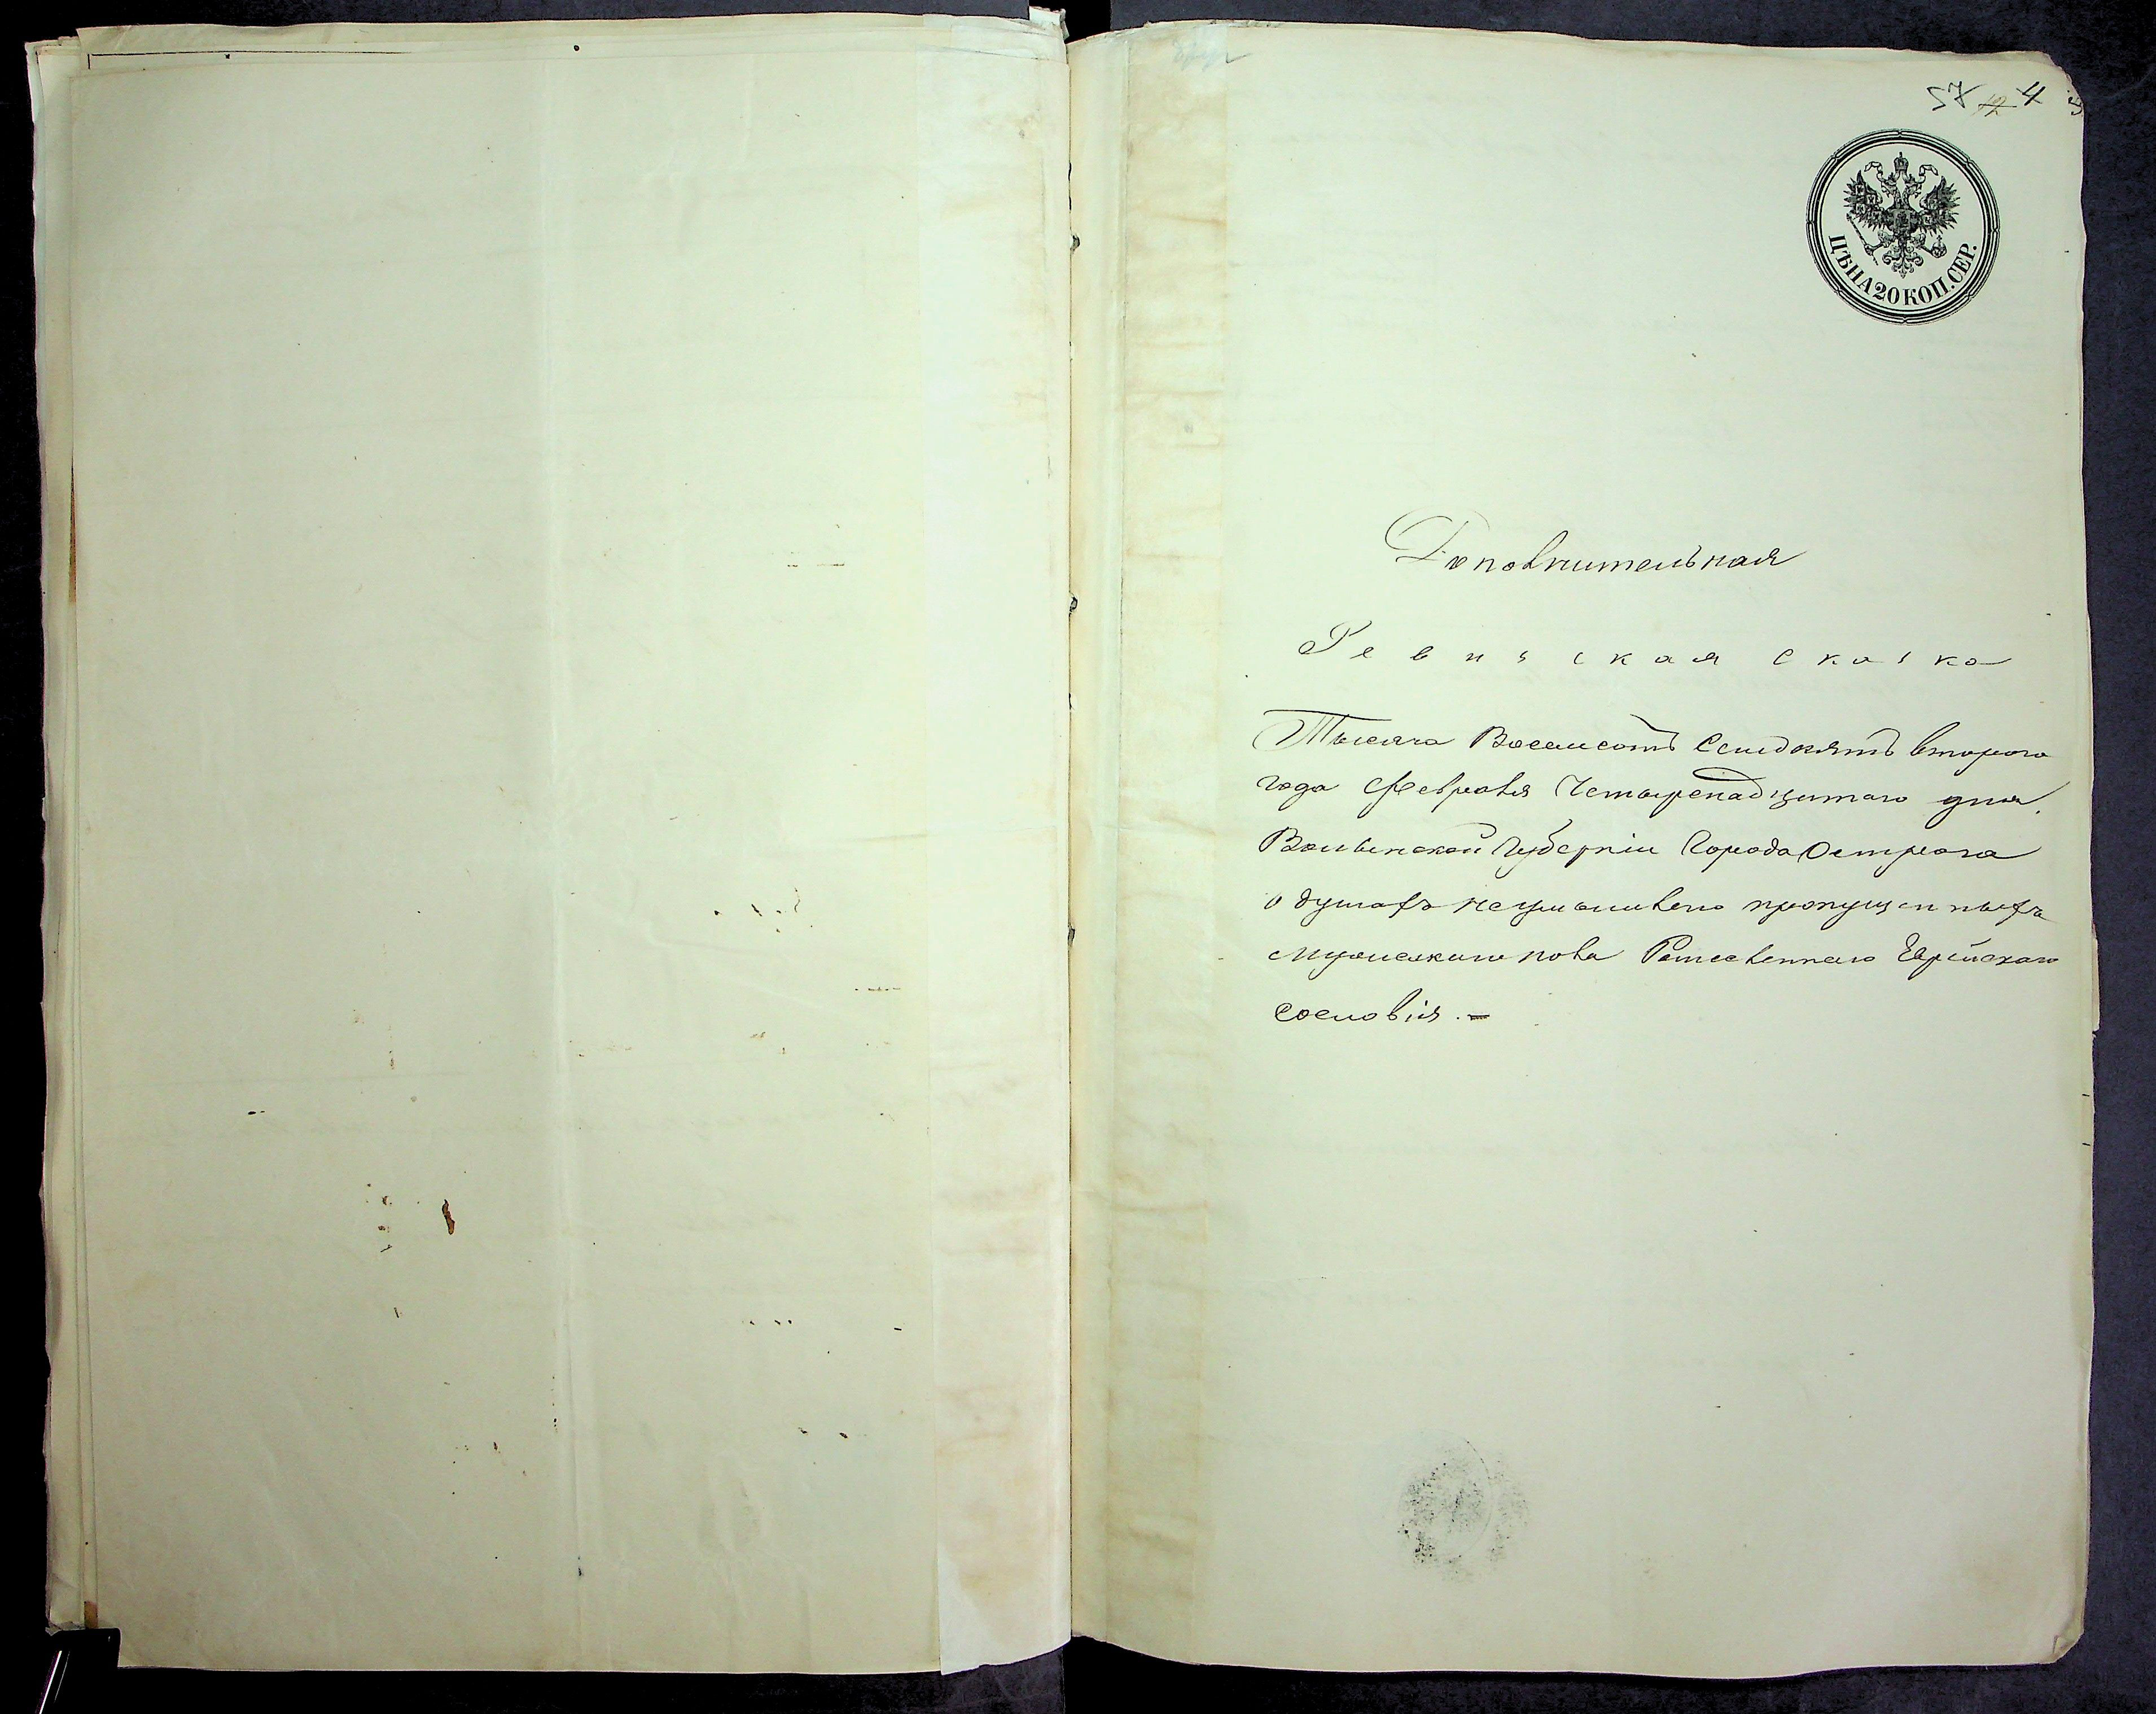 57 12 4
ЦѢНА 20 КОП. СЕР.
Дополнительная
Ревизская сказка
Тысяча Восемсотъ Семдесятъ второго
года Февраля Четыренадцатаго дня.
Волынской Губерніи Города Острога
о душахъ неумышлено пропущенныхъ
мужескаго пола Еврейскаго
Сословія. —